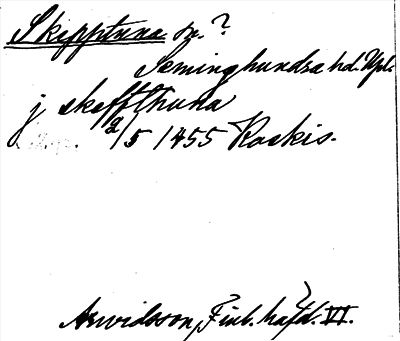 Skepptuna sn.?
Seminghundra hd. Upl.
j skeffthuna
2/5 1455 Raskis.
Arwidsson, Finl. häfd. VI.